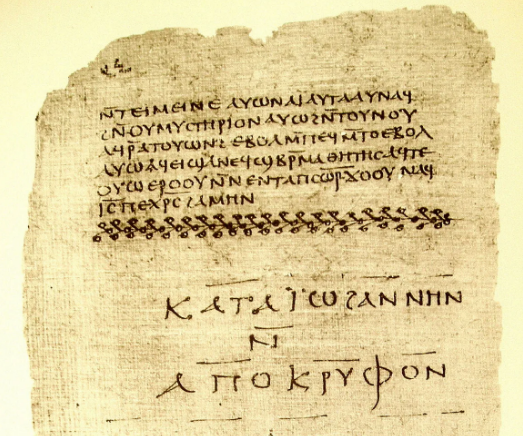 ⲛ̄ⲧⲉⲓⲙⲉⲓⲛⲉ ⲁⲩⲱ ⲛⲁⲓ ⲁⲩⲧⲁⲁⲩ ⲛⲁϥ
ϩⲛ̄ ⲟⲩⲙⲩⲥⲧⲏⲣⲓⲟⲛ ⲁⲩⲱ ϩⲛ̄ⲧⲟⲩⲛⲟⲩ
ⲁϥⲣ̄ⲁⲧⲟⲩⲱⲛϩ ⲉⲃⲟⲗ ⲙ̄ⲡⲉϥⲙ̄ⲧⲟ ⲉⲃⲟⲗ
ⲁⲩⲱ ⲁϥⲉⲓ ϣⲁ ⲛⲉϥϣⲃⲣ̄ⲙⲁⲑⲏⲧⲏⲥ ⲁϥⲧⲉ
ⲟⲩⲱ ⲉⲣⲟⲟⲩ ⲛ̄ⲛⲉⲛⲧⲁⲡⲥⲱ̅ⲣ̅ ϫⲟⲟⲩ ⲛⲁϥ
ⲓ̅ⲥ̅ ⲡⲉⲭ̅ⲣ̅ⲥ̅ ϩⲁⲙⲏⲛ
ⲕⲁⲧⲁ ⲓ̈ⲱϩⲁⲛⲛⲏⲛ
ⲛ̄
ⲁⲡⲟⲕⲣⲩⲫⲟⲛ